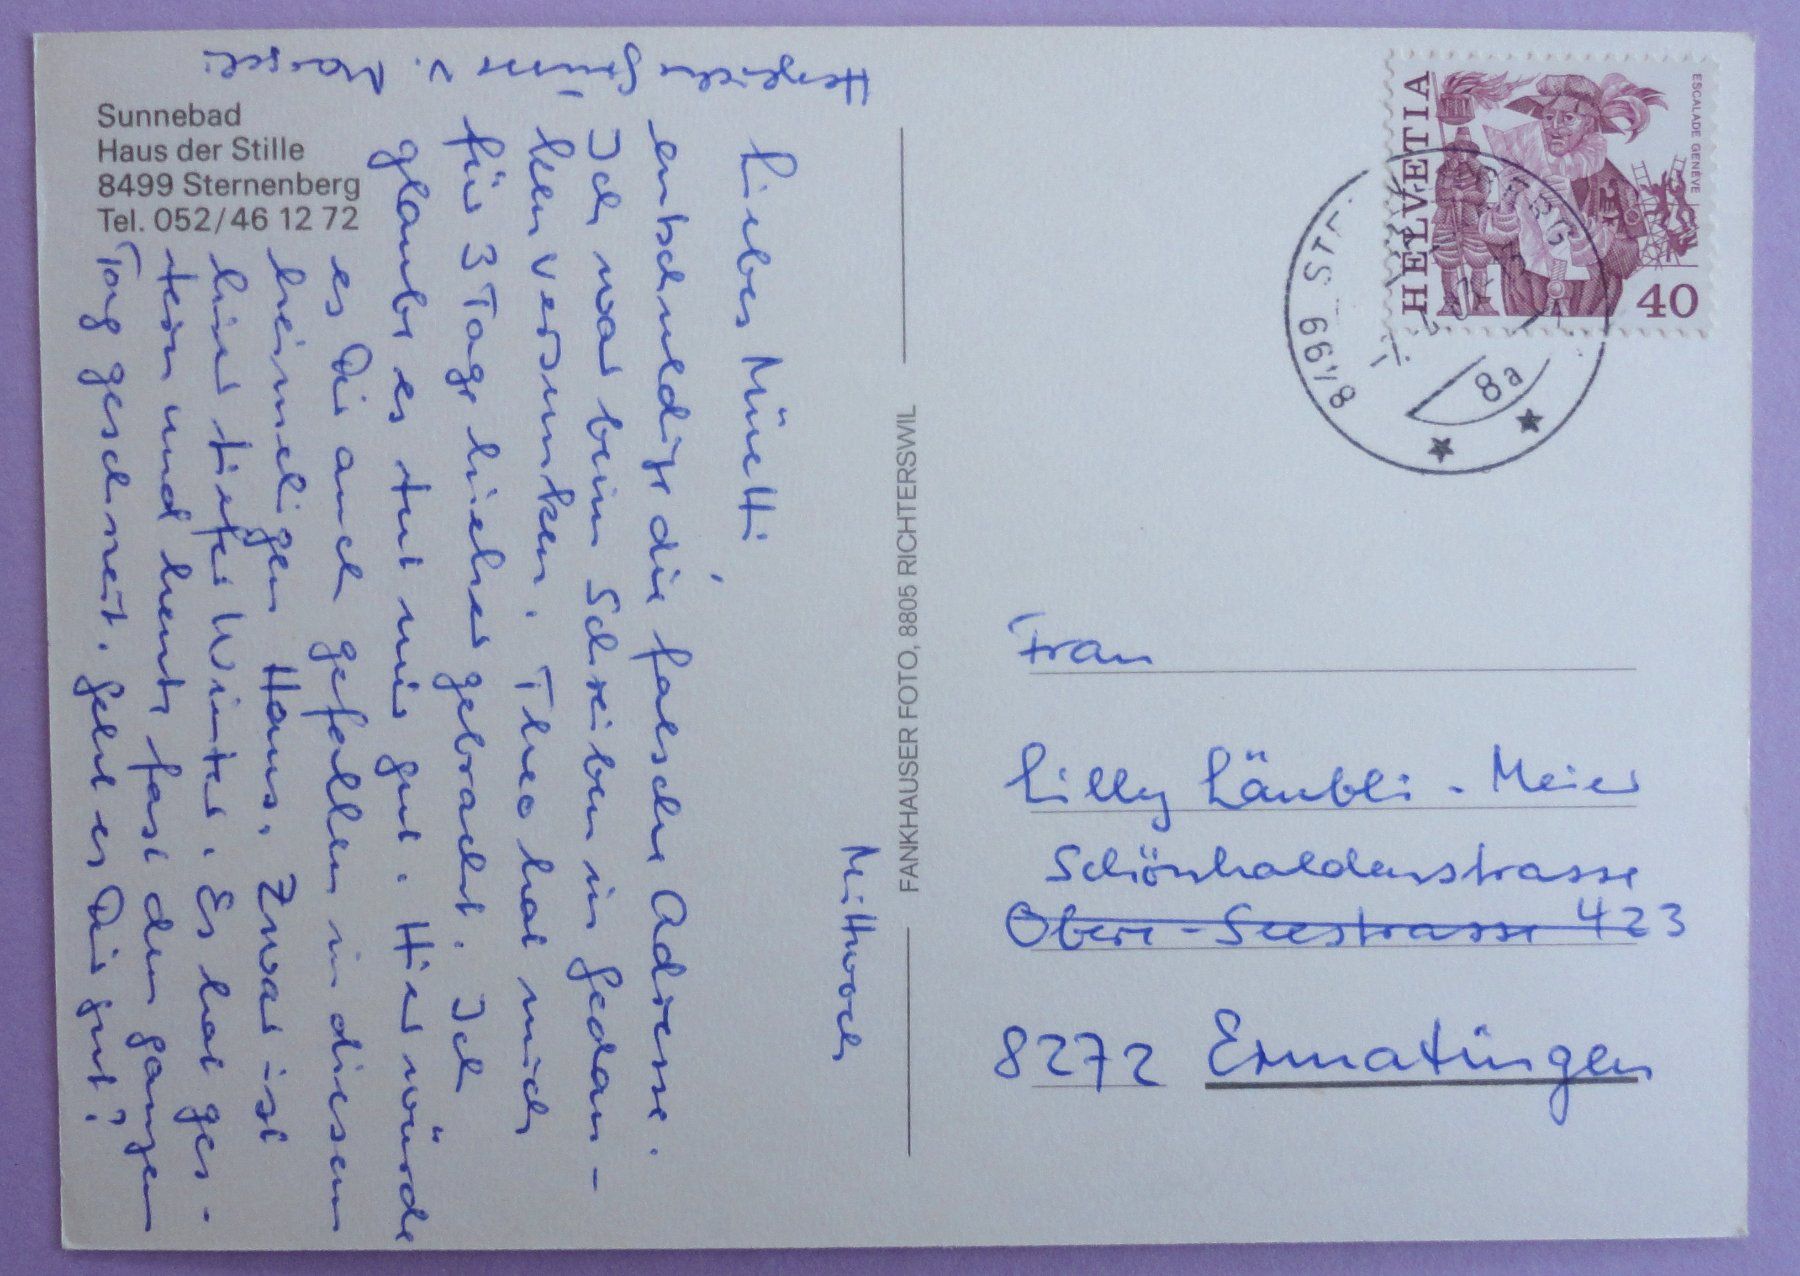 Sunnebad
Haus der Stille
8499 Sternenberg
Tel. 052/46 12 72
Mittwoch
Liebes Müetti,
entschuldige die falsche Adresse.
Ich war beim Schreiben in Gedan-
ken versunken. Theo hat mich
für 3 Tage hieher gebracht. Ich
glaube es tut mir gut. Hier würde
es Dir auch gefallen in diesem
heimeligen Haus. Zwar ist
hier tiefer Winter. Es hat ges-
tern und heute fast den ganzen
Tag geschneit. Geht es Dir gut?
Herzliche Grüsse v.
FANKHAUSER FOTO, 8805 RICHTERSWIL
HELVETIA
ESCALADE GENÈVE
40
8499 STE
BERG
8a
Frau
Lilly Läubli-Meier
Schönhaldenstrasse
Obere-Seestrasse 423
8272 Ermatingen